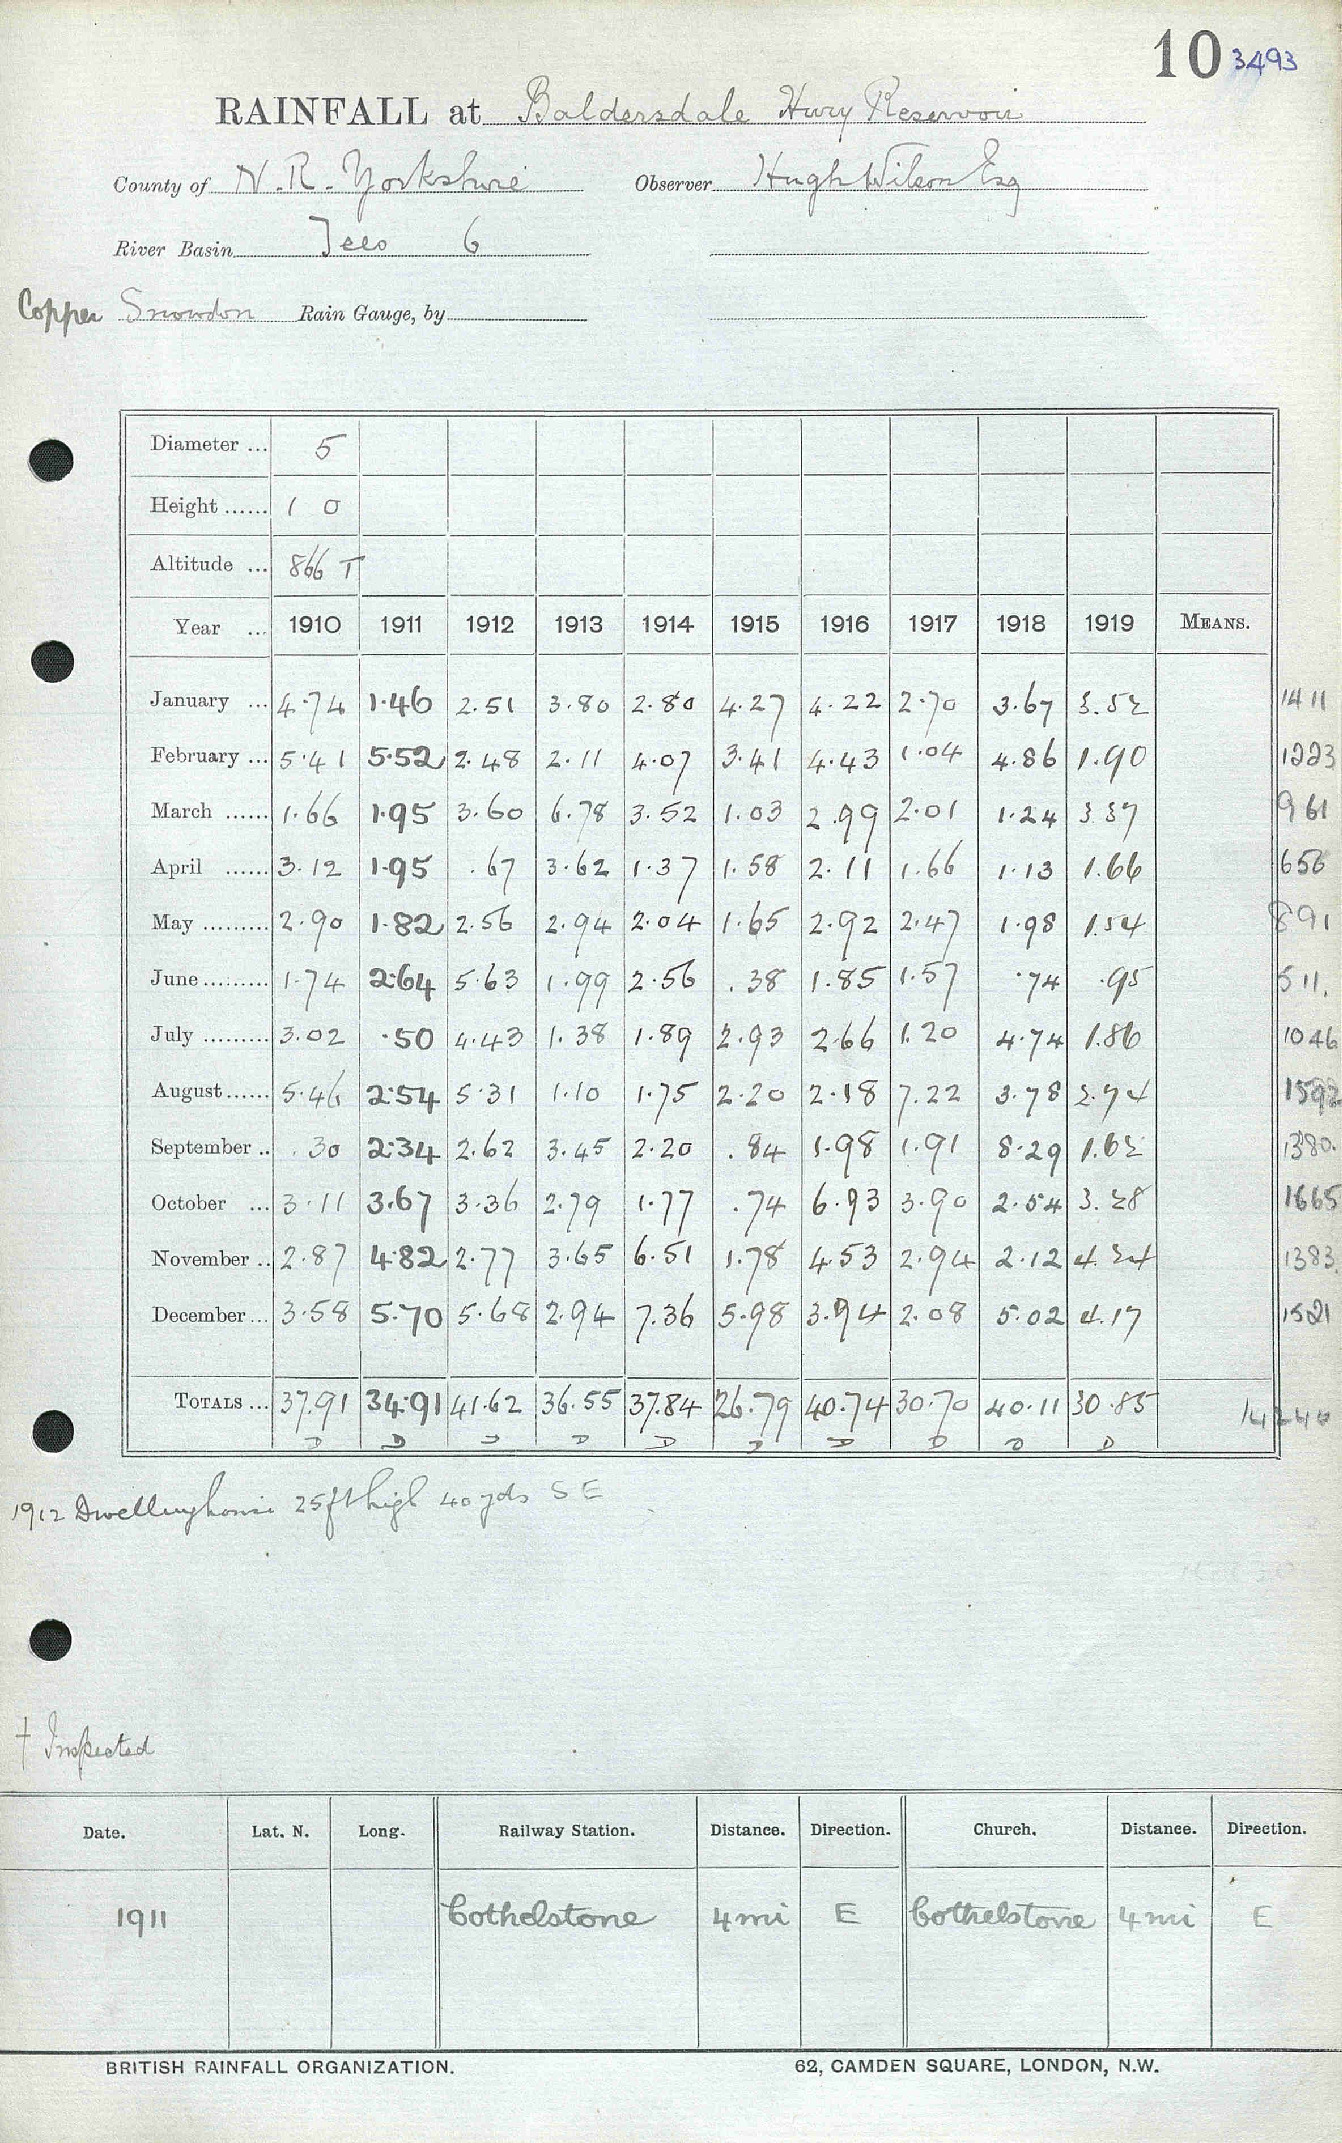 10 3493
RAINFALL at Baldersdale Hury Reservoir
County of N.R. Yorkshire Observer Hugh Wilson Esq
River Basin Tees 6
Copper Snowdon Rain Gauge, by
Diameter ... 5
Height ...... 1 0
Altitude ... 866 T
Year ... 1910 1911 1912 1913 1914 1915 1916 1917 1918 1919 MEANS.
January ... 4.74 1.46 2.51 3.80 2.80 4.27 4.22 2.70 3.67 3.52 1411
February ... 5.41 5.52 2.48 2.11 4.07 3.41 4.43 1.04 4.86 1.90 1223
March ...... 1.66 1.95 3.60 6.78 3.52 1.03 2.99 2.01 1.24 3.37 961
April ...... 3.12 1.95 .67 3.62 1.37 1.58 2.11 1.66 1.13 1.66 656
May ......... 2.90 1.82 2.56 2.94 2.04 1.65 2.92 2.47 1.98 1.54 891
June ......... 1.74 2.64 5.63 1.99 2.56 .38 1.85 1.57 .74 .95 511.
July ......... 3.02 .50 4.43 1.38 1.89 2.93 2.66 1.20 4.74 1.86 1046
August ...... 5.46 2.54 5.31 1.10 1.75 2.20 2.18 7.22 3.78 2.74 1592
September .. .30 2.34 2.62 3.45 2.20 .84 1.98 1.91 8.29 1.62 1380.
October ... 3.11 3.67 3.36 2.79 1.77 .74 6.93 3.90 2.54 3.28 1665
November .. 2.87 4.82 2.77 3.65 6.51 1.78 4.53 2.94 2.12 4.24 1383.
December ... 3.58 5.70 5.68 2.94 7.36 5.98 3.94 2.08 5.02 4.17 1521
TOTALS ... 37.91 34.91 41.62 36.55 37.84 26.79 40.74 30.70 40.11 30.85 14240
D D D D D D D D D D
1912 Dwellinghouse 25ft high 40 yds S E
† Inspected
Date. Lat. N. Long. Railway Station. Distance. Direction. Church. Distance. Direction.
1911 Cothelstone 4 mi E Cothelstone 4 mi E
BRITISH RAINFALL ORGANIZATION. 62, CAMDEN SQUARE, LONDON, N.W.